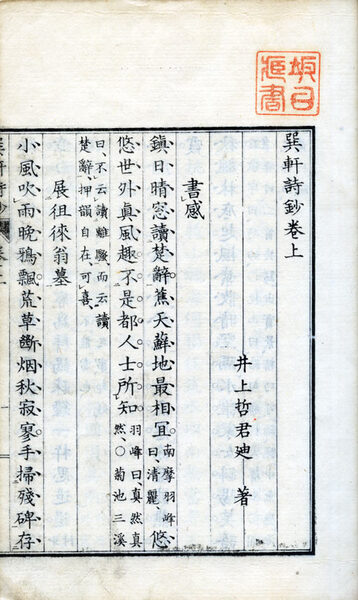 巽軒詩鈔卷上
井上哲君迪 著
書感
鎭日晴窓讀楚辭蕉天蘚地最相宜 南摩羽峰曰、清麗、 悠
悠世外眞風趣不是都人士所知 羽峰曰眞然眞然、〇菊池三溪
曰、不云讀離騷而云讀
楚辭、押韻自在、可喜、
展徂徠翁墓
小風吹雨晚鴉飄荒草斷烟秋寂寥手掃殘碑存